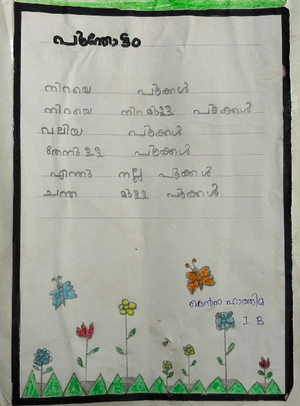 പൂന്തോട്ടം
നിറയെ പൂക്കൾ
നിറയെ നിറമുള്ള പൂക്കൾ
വലിയ പൂക്കൾ
തേനുള്ള പൂക്കൾ
എന്തു നല്ല പൂക്കൾ
ചന്ത മുള്ള പൂക്കൾ
ഫാത്തിമ
I B